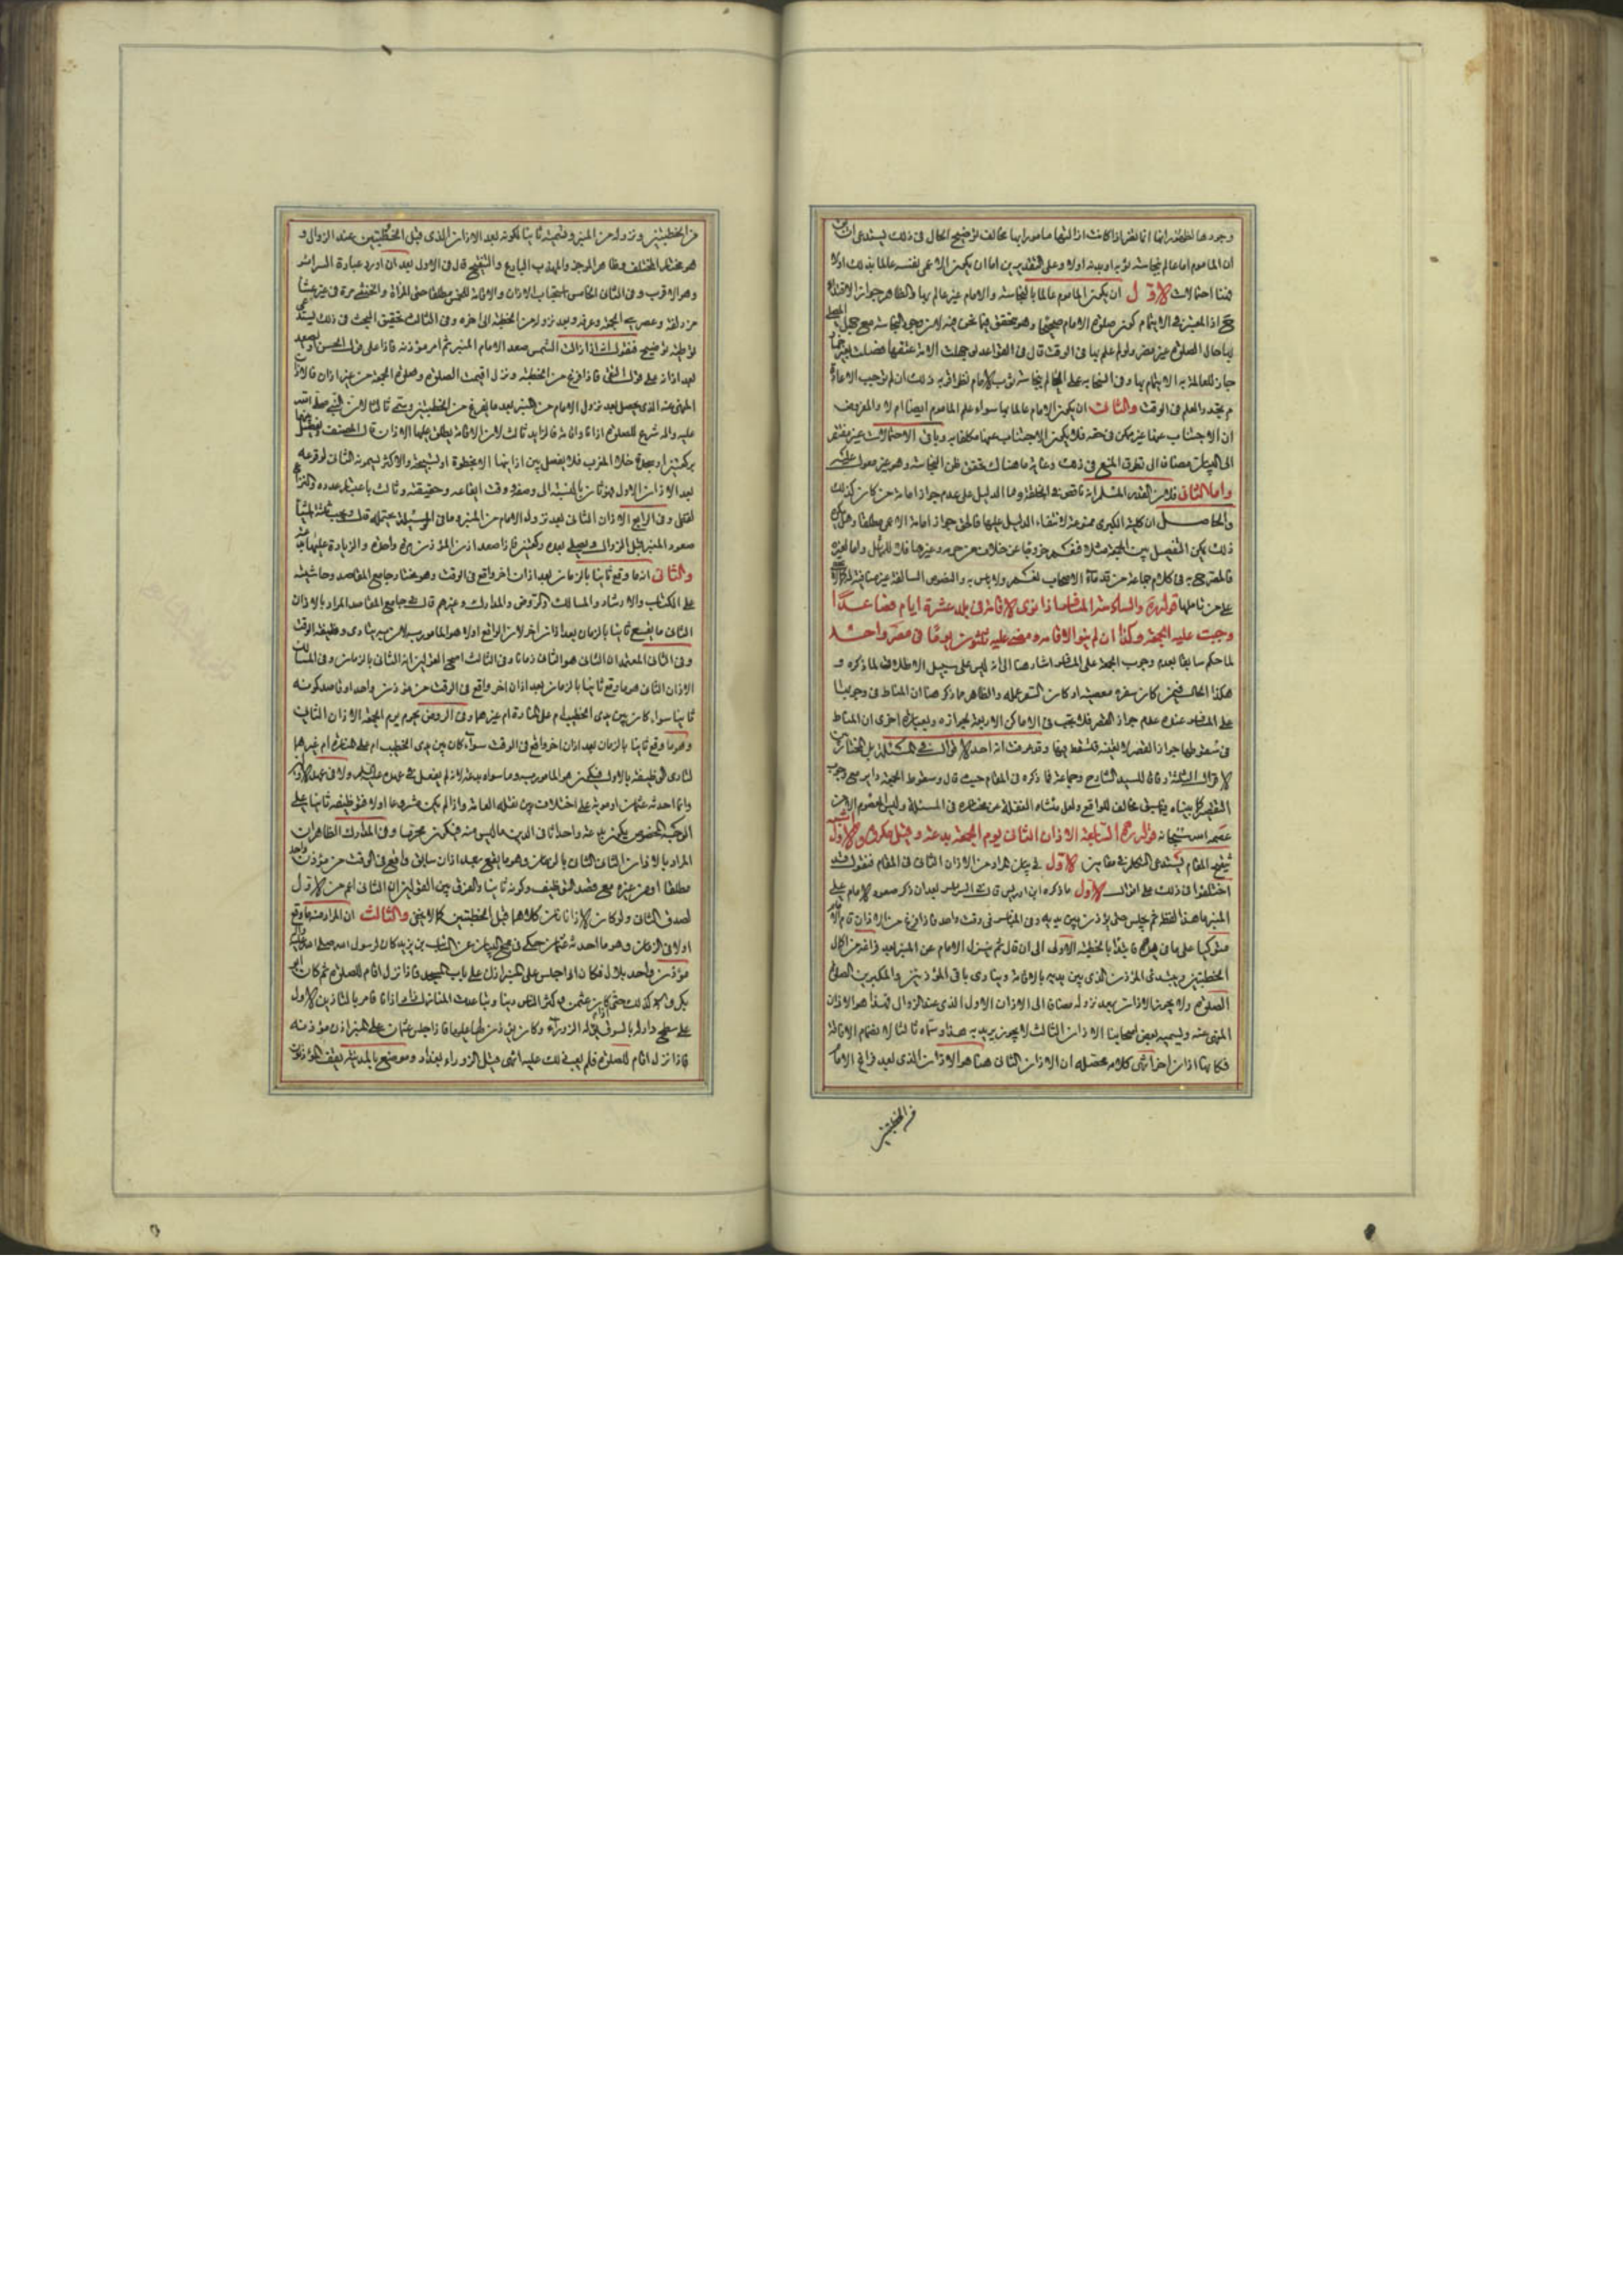 وجودها لظهور انها انما تضر اذا كانت ازالتها مامورا بها مخالف توضيح الحال فى ذلك يستدعى ان
ان الماموم اما عالم بنجاسة ثوبه او بدنه اولا وعلى التقديرين اما ان يكون الاعمى بنفسه عالما بذلك اولا
فهنا احتمالات الاول ان يكون الماموم عالما بالنجاسة والامام غير عالم بها والظاهر جواز الاقتداء
اذ المعتبر فى الايتمام كون صلوة الامام صحيحة وهو متحقق فيما نحن فيه لان وجود النجاسة مع جهل
بها حال الصلوة غير مضر ولو لم علم بها فى الوقت قال فى القواعد لو جهلت الامة عتقها فصلت بغير
جاز للعالمة به الايتمام بها وفى
فى الوقت والثانى ان يكون الامام عالما بها سواء علم الماموم ايضا ام لا والمفروض
ان الاجتناب عنها غير ممكن فى حقه فلا يكون الاجتناب عنها مكلفا به وباقى الاحتمالات غير مفتقر
الى البيان مضافا الى تطرق المنع فى ذهاب وغاية ما هناك تحقق ظن النجاسة وهو غير معول عليه
واما الثانى فلان القدر المسلم انه ناقص فى الخلقة وما الدليل على عدم جواز امامة من كان كذلك
والحاصل ان كلية الكبرى ممنوعة لانتفاء الدليل عليها فالحق جواز امامة الاعمى مطلقا وهل
ذلك يمكن التفصيل بين الجمعة مثلا
فالمصرح به فى كلام جماعة من قدماء الاصحاب
على من تاملها قوله ره والسادسة المسافر اذا نوى الاقامة فى بلد عشرة ايام فصاعدا
وجبت عليه الجمعة وكذا ان لم ينو الاقامة ومضى عليه ثلثون يوما فى مصر واحد
لما حكم سابقا بعدم وجوب الجمعة على المسافر اشار هنا الى انه ليس على سبيل الاطلاق لما ذكره و
هكذا الحال فيمن كان سفره معصية او كان السفر عمله والظاهر مما ذكر هنا ان المناط فى وجوبها
على المسافر عنده عدم جواز القصر فلا يجب فى الاماكن الاربعة لجوازه وبعبارة اخرى ان المناط
فى سقوطها جواز القصر لا تعينه فتسقط فيها وقد عرفت انه احد الاقوال فى المسئلة بل المختار من
الاقوال الثلثة وقال للسيد الشارح وجماعة فما ذكره فى المقام حيث قال وسقوط الجمعة دائر مع وجوب
التقصير
عصمه الله سبحانه قوله ره السابعة الاذان الثانى يوم الجمعة بدعة وقيل مكروه والاول اشبه
تنقيح المقام يستدعى التكلم فى مقامين الاول فى بيان المراد من الاذان الثانى فى المقام فنقول قد
اختلفوا فى ذلك على اقوال الاول ما ذكره ابن ادريس قال فى السرائر بعد ان ذكر صعود الامام على
المنبر ما هذا لفظه ثم يجلس حتى يؤذن بين يديه وفى المنابر فى وقت واحد فاذا فرغ من الاذان قام الامام
متوكيا على ما فى يده فابتدا بالخطبة الاولى الى ان قال ثم ينزل الامام عن المنبر بعد فراغه من اكمال
الخطبتين ويبتدى المؤذن الذى بين يديه بالاقامة وينادى باقى المؤذنين والمكبرين الصلوة
الصلوة ولا يجوز الاذان بعد نزوله مضافا الى الاذان الاول الذى عند الزوال فهذا هو الاذان
المنهى عنه ويسميه بعض اصحابنا الاذان الثالث لا يجوز يريد به هذا وسماه ثالثا لانضمام الاقامة
فكانها اذان اخر انتهى كلامه محصله ان الاذان الثانى هنا هو الاذان الذى بعد فراغ الامام
من الخطبتين
من الخطبتين ونزوله من المنبر وتسميته ثانيا لكونه بعد الاذان الذى قبل الخطبتين عند الزوال و
هو مختار المختلف وظاهر الموجز والمهذب البارع والتنقيح قال فى الاول بعد ان اورد عبارة السرائر
وهو الاقرب وفى الثانى الخامس استحباب الاذان والاقامة للخمس مطلقا حتى المراة والخنثى مرة فى غير عشاء
مزدلفة وعصرى الجمعة وعرفة وبعد نزوله من الخطبة الى اخره وفى الثالث تحقيق البحث فى ذلك يستدعى
توطئة توضيح فنقول انه اذا زالت الشمس صعد الامام المنبر ثم امر مؤذنه فاذا على قول الحسن او يصعد
بعد اذانه على قول التقى فاذا فرغ من الخطبة ونزل اقيمت الصلوة وصلوة الجمعة من غير اذان فالاذان
المنهى عنه الذى يحصل بعد نزول الامام من المنبر بعد ما يفرغ من الخطبتين ويسمى ثالثا لان النبى صلى الله
عليه واله شرع للصلوة اذانا واقامة فالزايد ثالث لان الاقامة يطلق عليها الاذان قال المصنف يفصل بينهما
بركعتين او سجدة خلا المغرب فلا يفصل بين اذانيها الا بخطوة او تسبيحة والاكثر يسمونه الثانى لوقوعه
بعد الاذان الاول فهو ثان بالنسبة الى وصفه وقت ايقاعه وحقيقته وثالث باعتبار عدده والنزاع
لفظى وفى الرابع الاذان الثانى بعد نزول الامام من المنبر وما فى الوسيلة يحتمله قال ويجب ثلثة اشياء
صعود المنبر قبل الزوال ويصلى بعده ركعتين فاذا صعد اذن المؤذن مرة واحدة والزيادة عليها بدعة
والثانى انه ما وقع ثانيا بالزمان بعد اذان اخر واقع فى الوقت وهو مختار جامع المقاصد وحاشيته
على الكتاب والارشاد والمسالك والروض والمدارك وغيرهم قال فى جامع المقاصد المراد بالاذان
الثانى ما يقع ثانيا بالزمان بعد اذان اخر لان الواقع اولا هو المامور به لان به ينادى وظيفة الوقت
وفى الثانى المعتمد ان الثانى هو الثانى زمانا وفى الثالث اصح القولين انه الثانى بالزمان وفى المسالك
الاذان الثانى هو ما وقع ثانيا بالزمان بعد اذان اخر واقع فى الوقت من مؤذن واحد او قاصد كونه
ثانيا سواء كان بين يدى الخطيب ام على المنارة ام غيرهما وفى الروض يحرم يوم الجمعة الاذان الثانى
وهو ما وقع ثانيا بالزمان بعد اذان اخر واقع فى الوقت سواء كان بين يدى الخطيب ام على المنارة ام غيرهما
لتادى الوظيفة بالاول فيكون هو المامور به وما سواه بدعة لانه لم يفعل فى عهده عليه السلام ولا فى عهد الاولين
وانما احدثه عثمان او معوية على اختلاف بين نقلة العامة واذا لم يكن مشروعا اولا فتوظيفه ثانيا على
الوجه المخصوص يكون بدعة واحداثا فى الدين ما ليس منه فيكون محرما وفى المدارك الظاهر ان
المراد بالاذان الثانى الثانى بالزمان وهو ما يقع بعد اذان سابق واقع فى الوقت من مؤذن واحد
مطلقا او من غيره مع قصد التوظيف وكونه ثانيا والفرق بين القولين ان الثانى اعم من الاول
لصدق الثانى ولو كان الاذانان كلاهما قبل الخطبتين كما لا يخفى والثالث ان المراد منه ما وقع
اولا فى الزمان وهو ما احدثه عثمان حكى فى مجمع البيان عن السائب بن يزيد كان لرسول الله صلى الله عليه واله
مؤذن واحد بلال فكان اذا جلس على المنبر اذن على باب المسجد فاذا نزل اقام للصلوة ثم كان ابو
بكر وعمر كذلك حتى كان عثمن وكثر الناس وتباعدت المنازل زاد اذانا فامر بالتاذين الاول
على سطح دار له بالسوق يقال له الزوراء وكان يؤذن له عليها فاذا جلس عثمان على المنبر اذن مؤذنه
فاذا نزل اقام للصلوة فلم يعب ذلك عليه انتهى